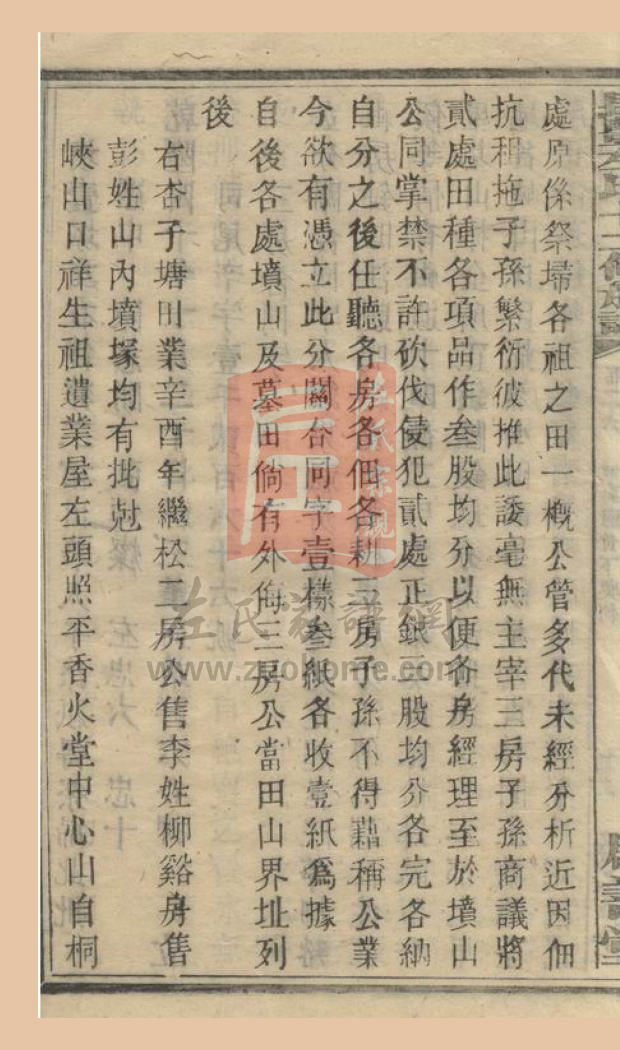 處原係祭埽各祖之田一概公管多代未經分析近因佃
抗租拖子孫繁衍彼推此諉毫無主宰三房子孫商議將
貳處田種各項品作叁股均分以便各房經理至於墳山
公同掌禁不許砍伐侵犯貳處正銀三股均分各完各納
自分之後任聽各房各佃各耕三房子孫不得藉稱公業
今欲有憑立此分關合同字壹樣叁紙各收壹紙爲據
自後各處墳山及墓田倘有外侮三房公當田山界址列
後
右杏子塘田業辛酉年繼松二房公售李姓柳谿房售
彭姓山內墳塚均有批尅
峽山口祥生祖遺業屋左頭照平香火堂中心山自桐
左氏宗親
左氏族譜網
www.zuohome.com